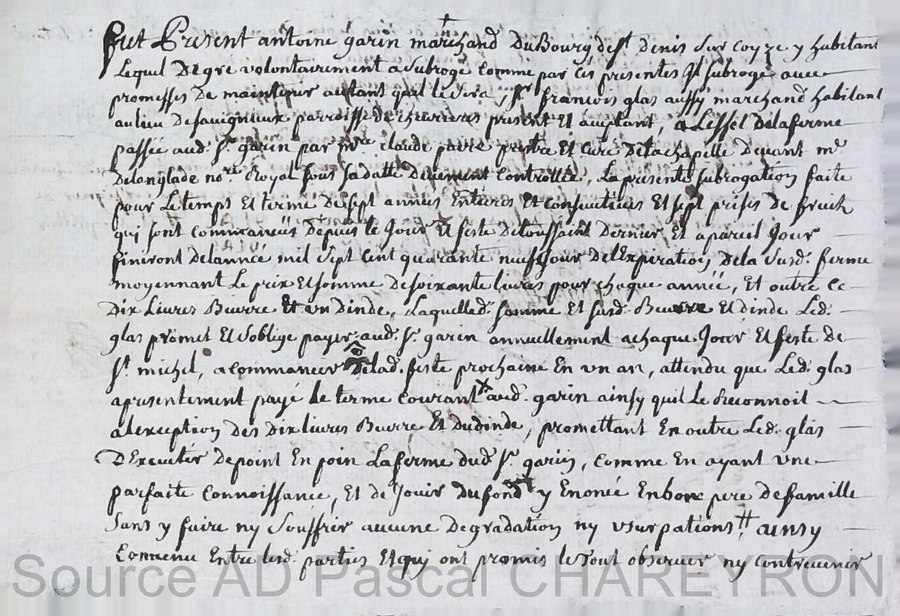 fut Present antoine garin marchand Du Bourg de st denis sur coyze y habitant
Lequel De gre volontairement a subrogé comme par ces presentes Il subroge avec
promesses de maintenir autant quil levera, sr francois glas aussy marchand habitant
au lieu de savigneux parroisse de chevrieres present et acceptant, a Leffet de la ferme
passée aud. sr garin par mre claude pretre et curé de la chapelle devant me
Delanglade nore Royal sous sa datte Duement Controllée, La presente subrogation faite
pour Le temps et terme de sept années Entieres et consecutives et sept prises de fruits
qui sont commancées Depuis le Jour et feste de toussaint Dernier Et a pareil Jour
finiront de lannée mil sept cent quarante neuf Jour de lExpiration De la susd. ferme
moyennant Le prix et somme de soixante livres pour chaque année, Et outre ce
Dix Livres Beurre Et un dinde, Laquelled. somme et susd. Beurre Et dinde Led.
glas promet et soblige payer aud. sr. garin annuellement a chaque Jour Et feste de
st michel, a commancer de lad. feste prochaine En un an, attendu que Led. glas
a presentement payé le terme courant aud. garin ainsy quil le Reconnoit
a lexception des Dix livres Beurre Et du dinde, promettant En outre Led. glas
DExecuter de point En poin La ferme dud. sr. garin, comme En ayant une
parfaite connoissance, Et de Jouir du fond y Enoncé En bon pere de famille
sans y faire ny souffrir aucune Degradation ny usurpations, ainsy
Convenu Entre lesd. parties Et qui ont promis le tout observer ny contrevenir
Source AD Pascal CHAREYRON